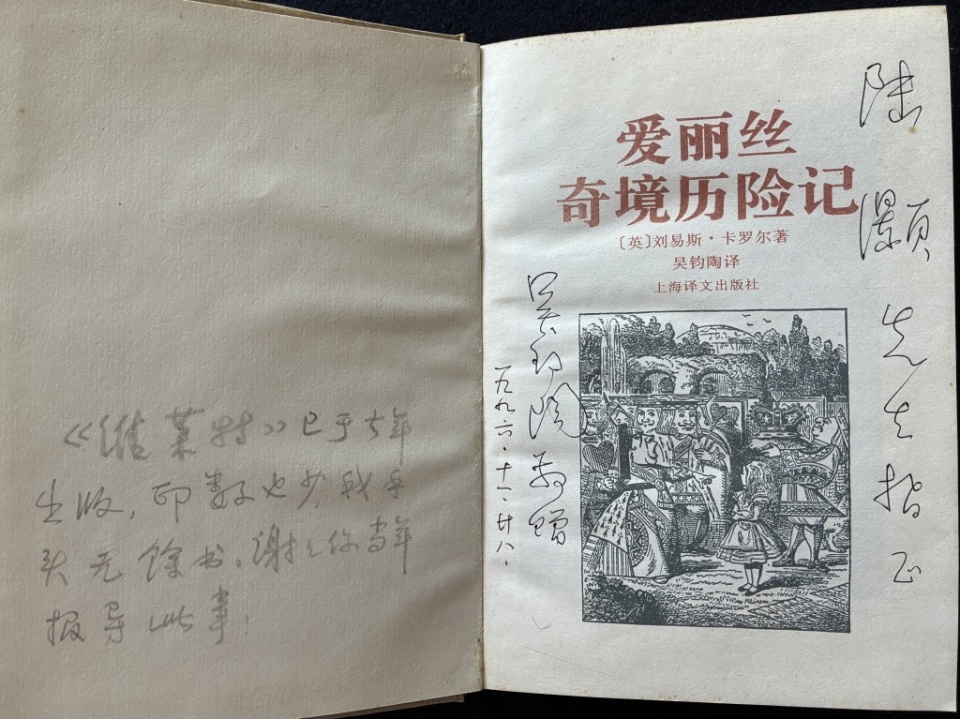 《维莱特》已于去年
出版，印数也少，我手
头无馀书，谢谢你当年
报导此事！
爱丽丝
奇境历险记
〔英〕刘易斯·卡罗尔著
吴钧陶译
上海译文出版社
陆灏先生指正
吴钧陶敬赠
一九九六·十一·廿八·